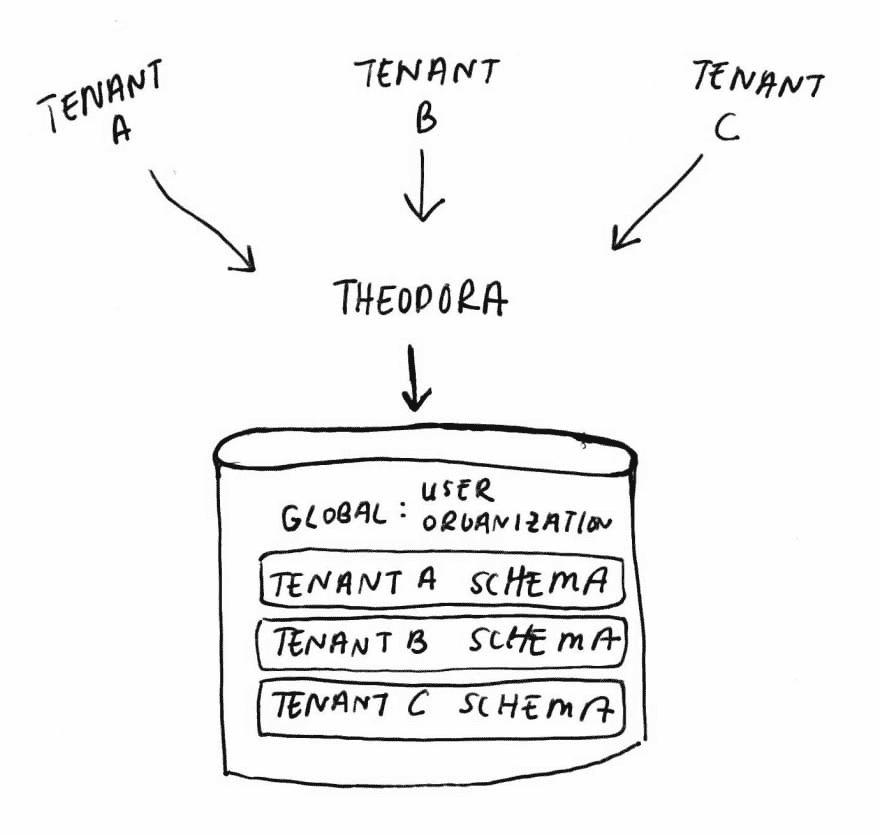 TENANT
A
TENANT
B
TENANT
C
THEODORA
GLOBAL: USER
ORGANIZATION
TENANT A SCHEMA
TENANT B SCHEMA
TENANT C SCHEMA